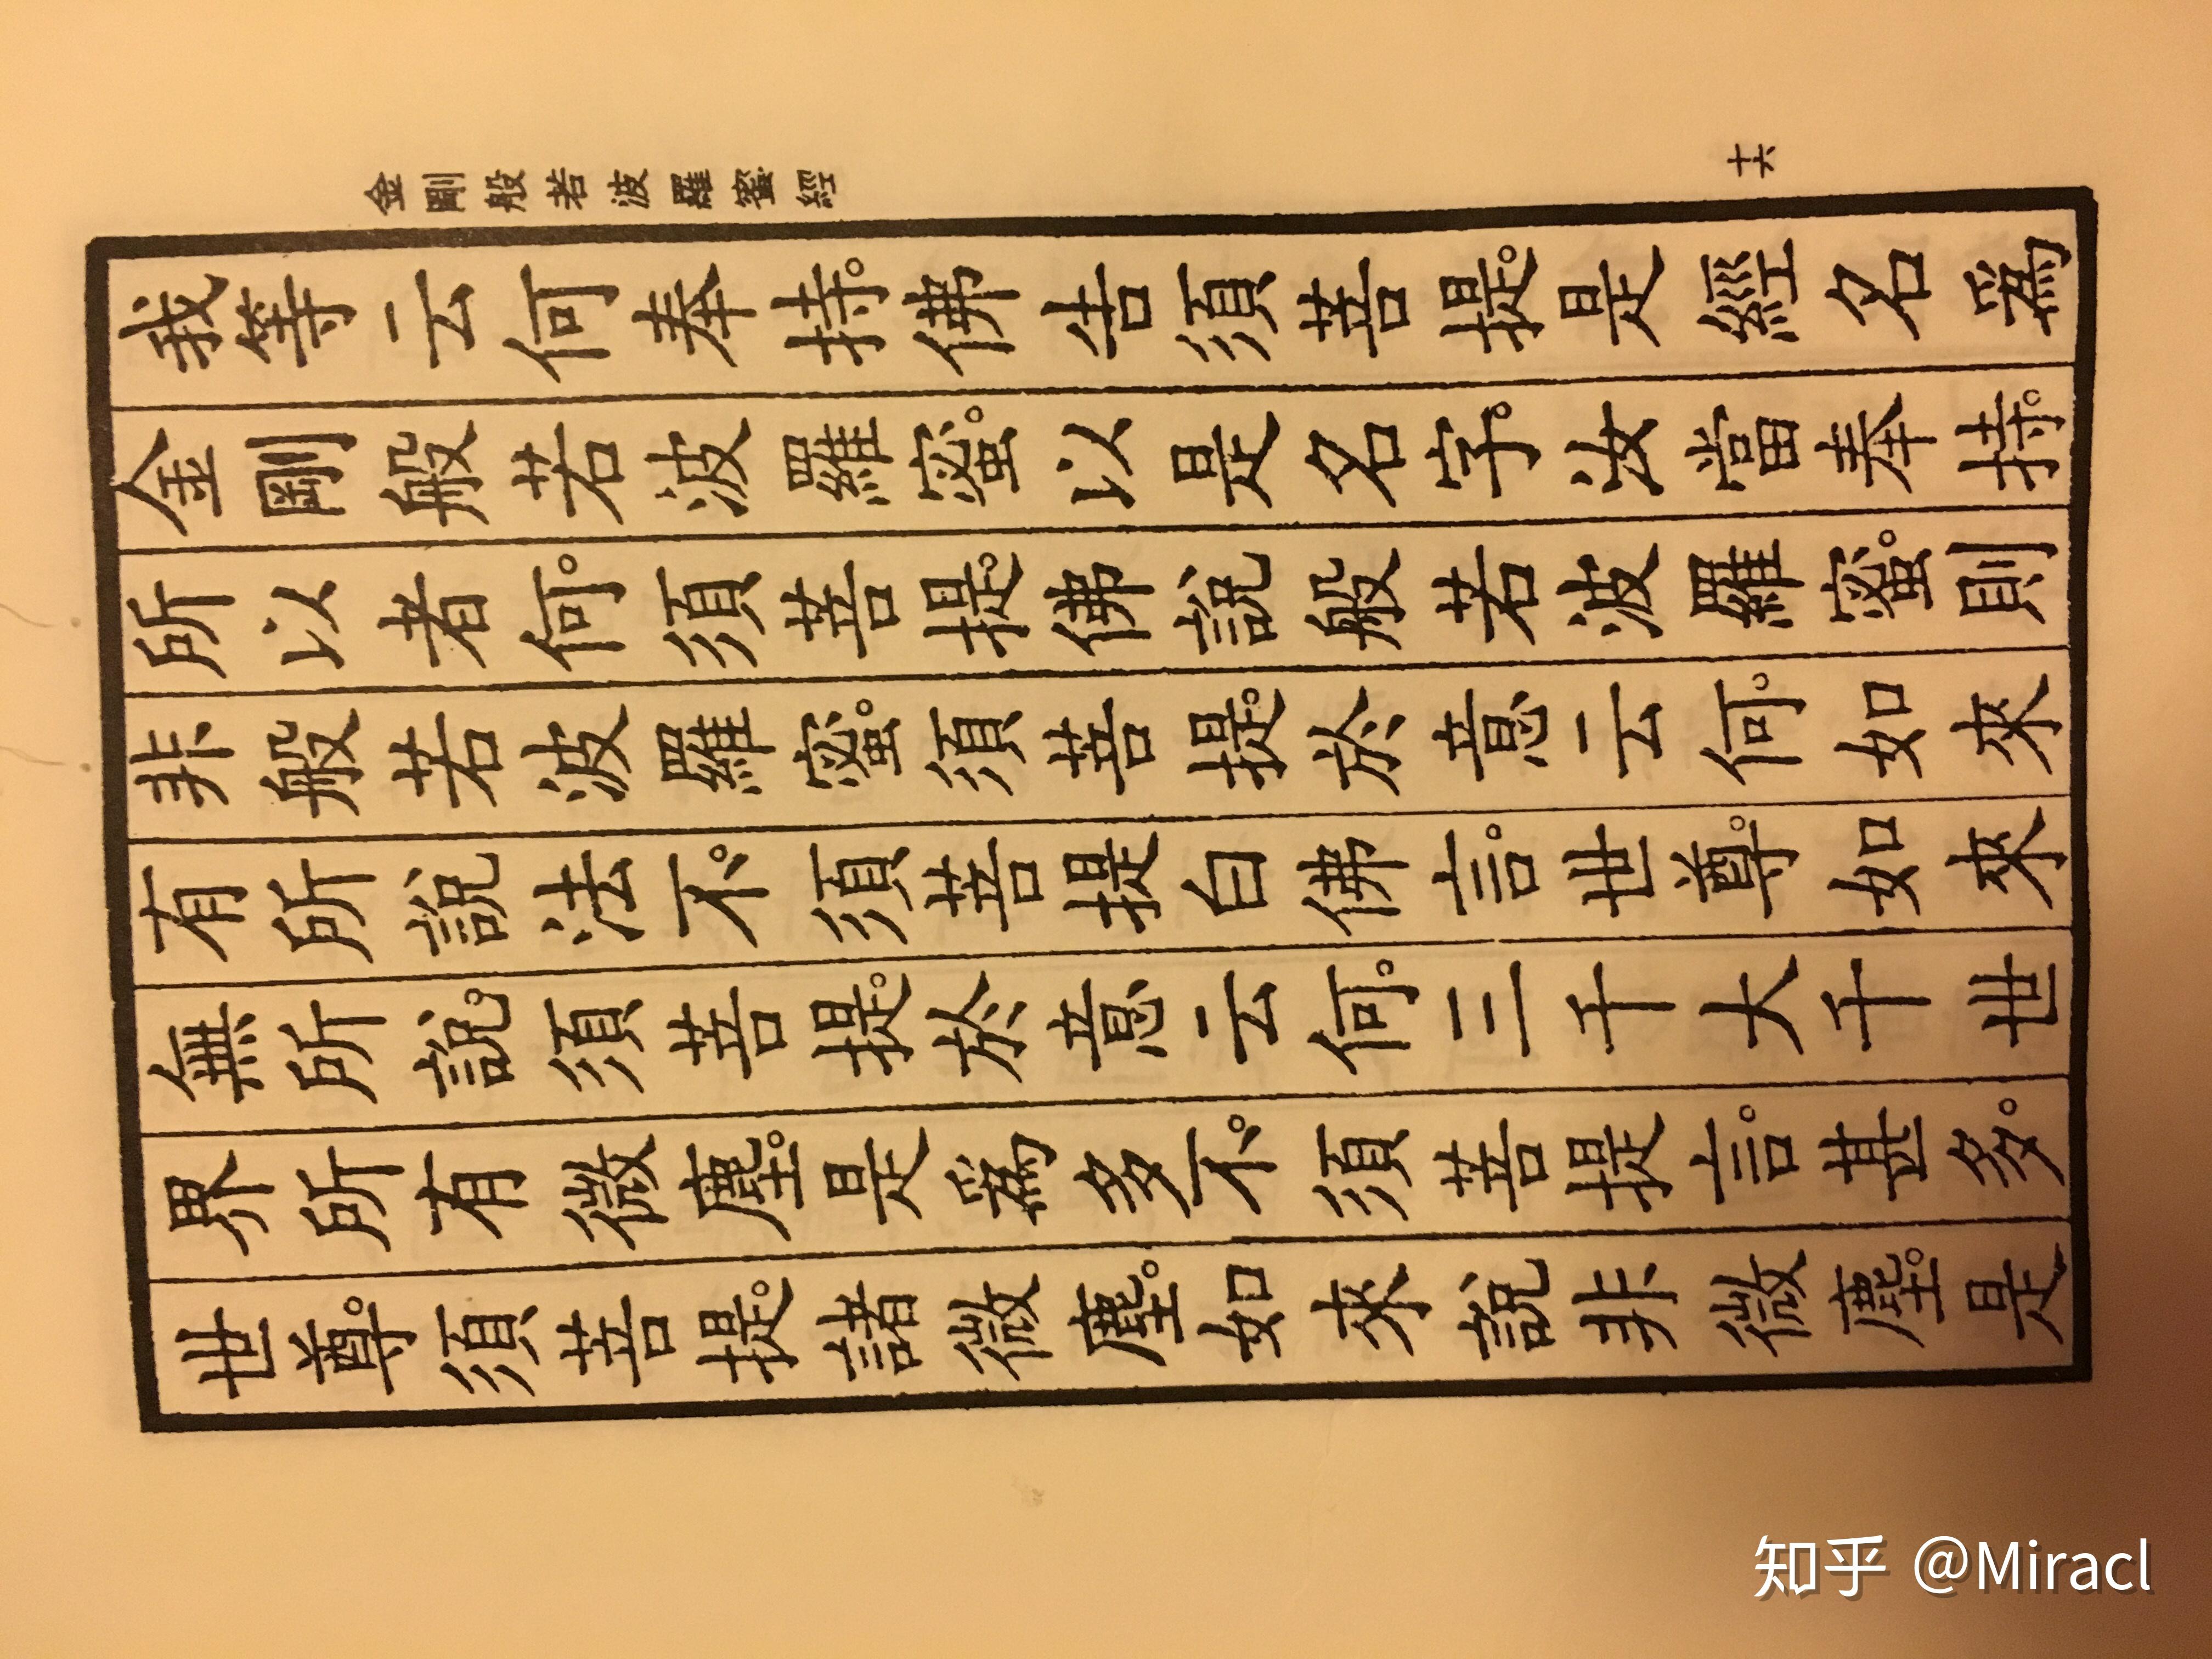 金剛般若波羅蜜經
十六
我等云何奉持。佛告須菩提。是經名爲
金剛般若波羅蜜。以是名字。汝當奉持。
所以者何。須菩提。佛說般若波羅蜜。則
非般若波羅蜜。須菩提。於意云何。如來
有所說法不。須菩提白佛言。世尊。如來
無所說。須菩提。於意云何。三千大千世
界所有微塵。是爲多不。須菩提言。甚多。
世尊。須菩提。諸微塵。如來說非微塵。是
知乎 @Miracl